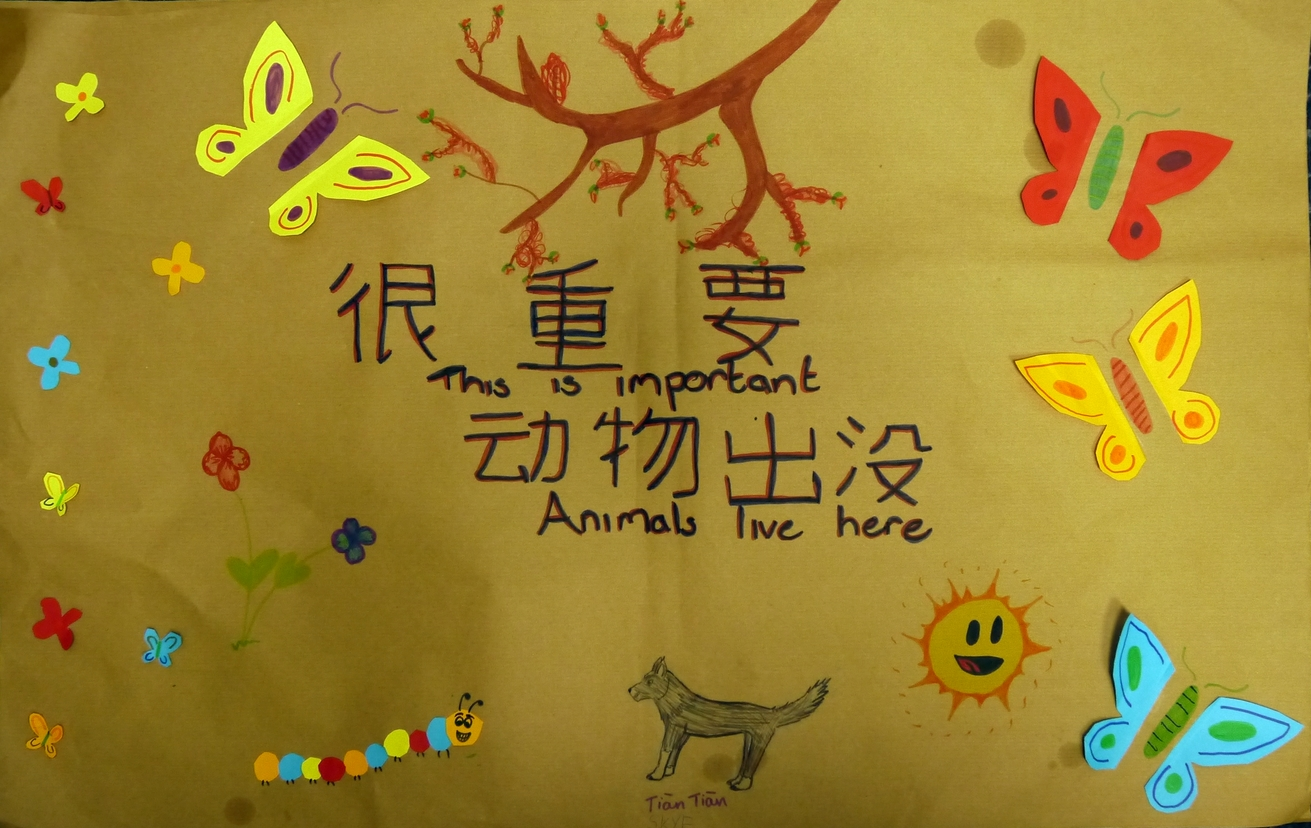 很重要
This is important
动物出没
Animals live here
Tiān Tiān
SKYE